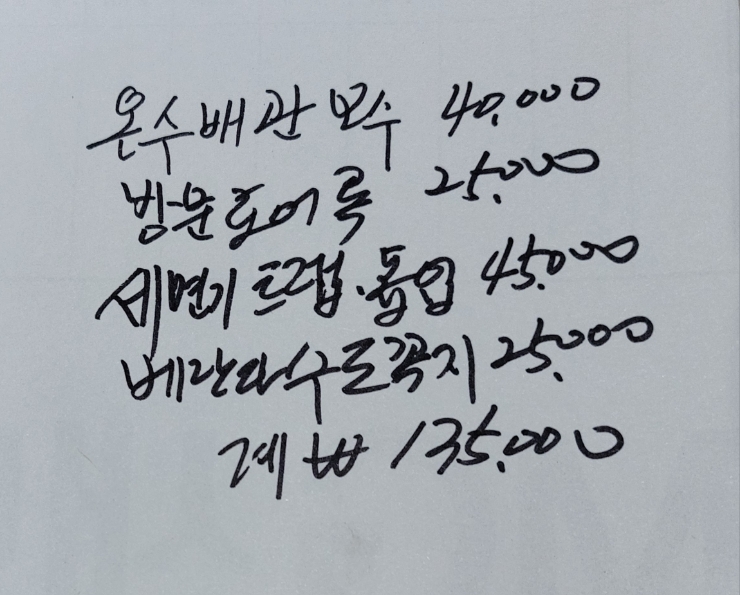 온수배관 보수 40,000
방문도어록 25,000
세면기 트랩.폽업 45,000
베란다수도꼭지 25,000
계 ₩ 135,000